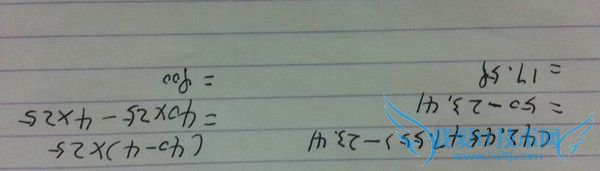 (40-4)×25
=40×25-4×25
=800
(42.45+7.55)-23.41
=50-23.41
=17.58